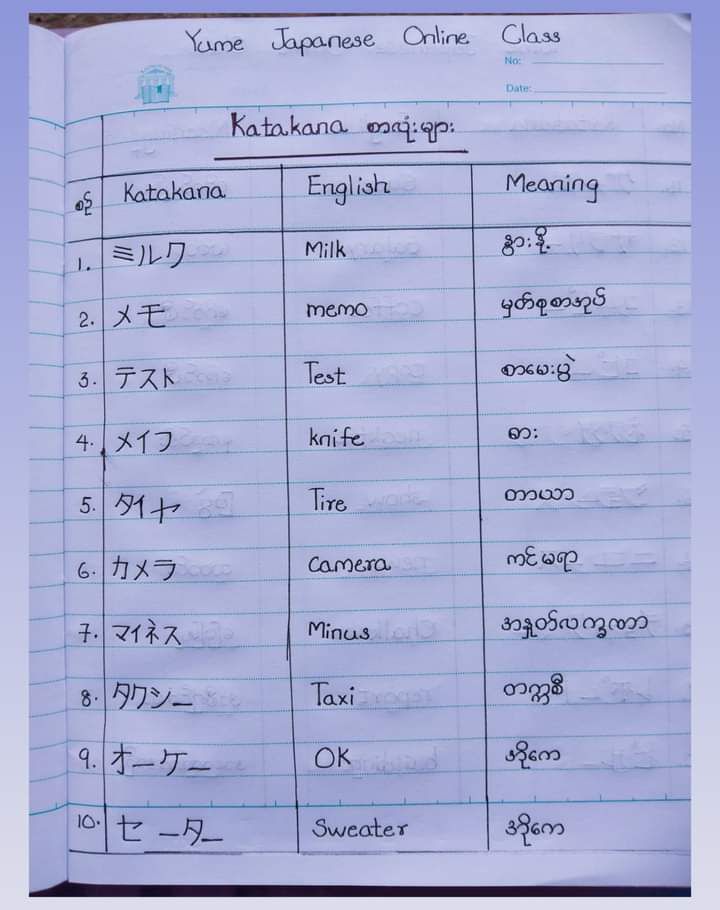 Yume Japanese Online Class
No:
Date:
Katakana စာလုံးများ
စဉ် Katakana English Meaning
1. ミルク Milk နွားနို့
2. メモ memo မှတ်စုစာအုပ်
3. テスト Test စာမေးပွဲ
4. メイフ knife ဓား
5. タイヤ Tire တာယာ
6. カメラ Camera ကင်မရာ
7. マイネス Minus အနှုတ်လက္ခဏာ
8. タクシー Taxi တက္ကစီ
9. オーケー OK အိုကေ
10. セーター Sweater အိုကေ